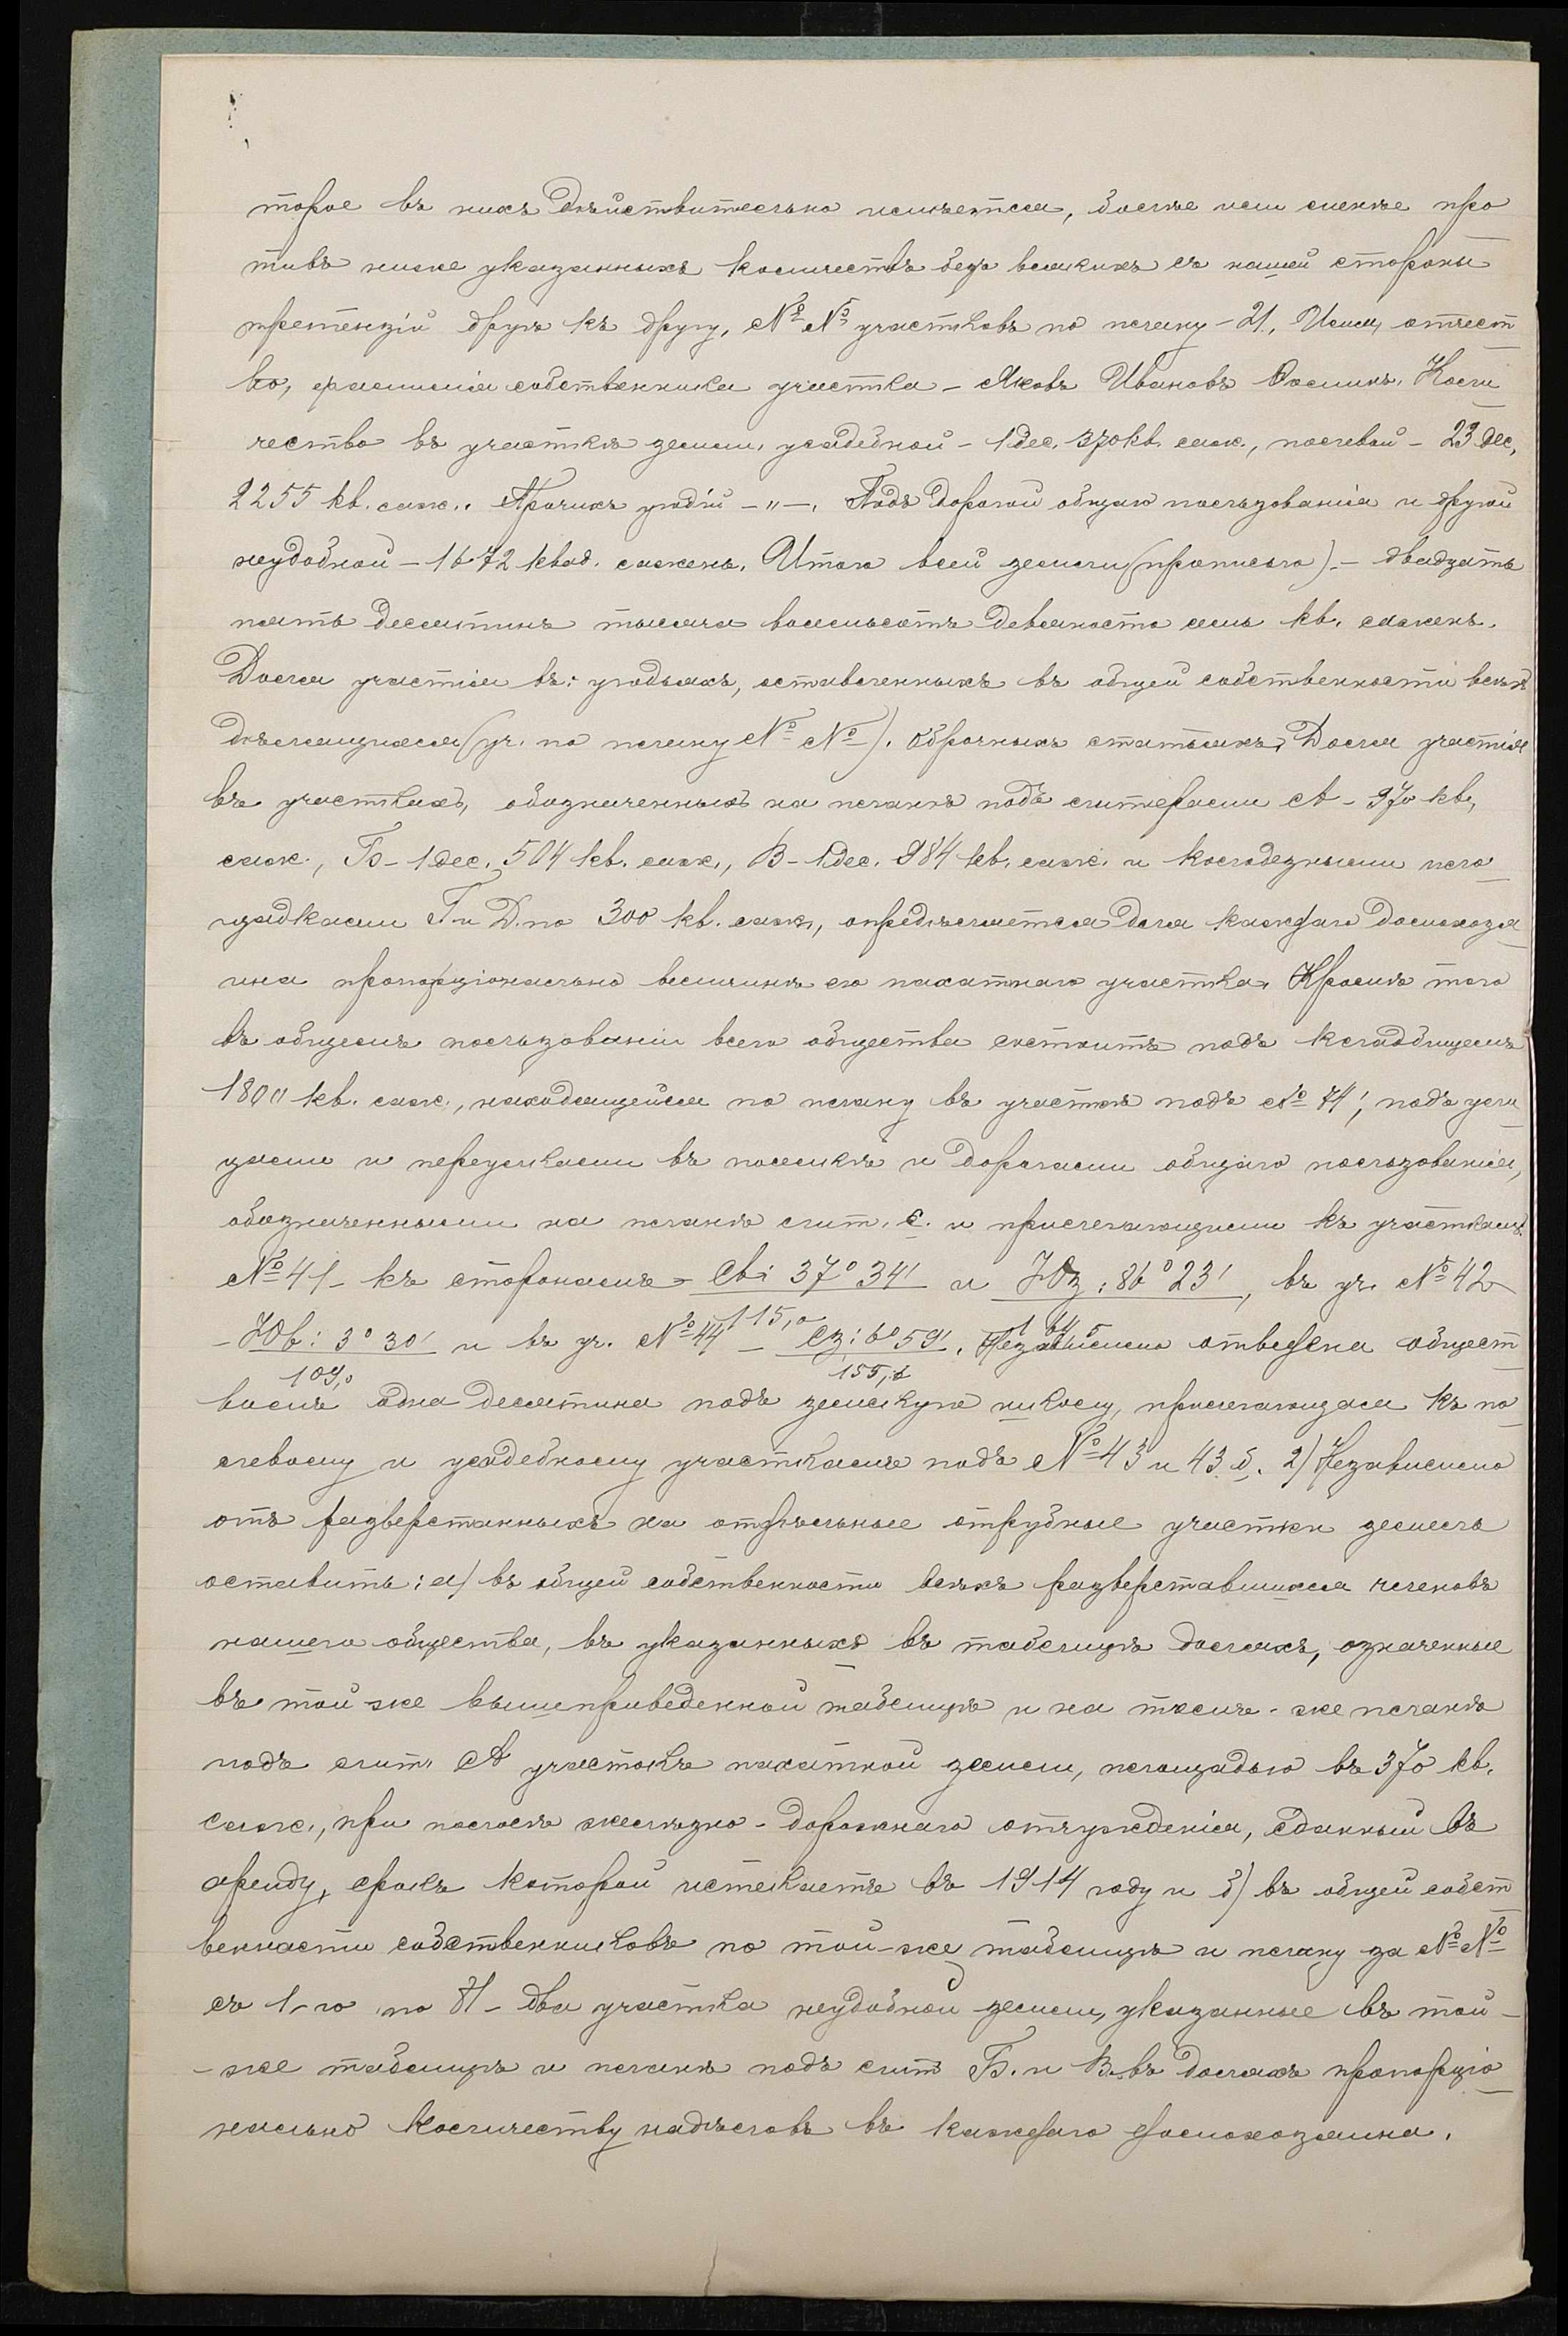 торое въ нихъ дѣйствительно имѣется, болѣе или менѣе про
тивъ ниже указанныхъ количествъ безъ всякихъ съ нашей стороны
претензій другъ къ другу, №№ участковъ по плану - 21, Имя, отчест
во, фамилія собственника участка - Яковъ Ивановъ Ѳоминъ. Коли
чество въ участкѣ земли, усадебной - 1 дес. 370 кв. саж., полевой - 23 дес,
2255 кв. саж.. Прочихъ угодій -"-. Подъ дорогой общаго пользованія и другой
неудобной - 1672 квад. сажень. Итого всей земли (прописью). - двадцать
пять десятинъ тысяча восемьсотъ девяносто семь кв. сажень.
Доля участія въ: угодьяхъ, оставленныхъ въ общей собственности всѣхъ
дѣлящихся (уч. по плану №№). Оброчныхъ статьяхъ, Доля участія
въ участкахъ, обозначенныхъ на планѣ подъ литерами А - 970 кв,
саж., Б - 1 дес. 504 кв. саж., В - 1 дес. 984 кв. саж. и колодезными пло
щадками Г и Д. по 300 кв. саж, опредѣляется для каждаго домохозя
ина пропорціонально величинѣ его пахатнаго участка. Кромѣ того
въ общемъ пользованіи всего общества состоитъ подъ кладбищемъ
1800 кв. саж., находящейся по плану въ участкѣ подъ № 74; подъ ули
цами и переулками въ поселкѣ и дорогами общаго пользованія,
обозначенными на планѣ лит. е. и прилегающими къ участкамъ
№ 41 - къ сторонамъ - СВ: 37° 34′ и ЮЗ: 86° 23′, въ уч. № 42
- ЮВ: 3° 30′ и въ уч. № 44 115,0 - СЗ: 6° 59′. Независимо отведена общест
109,0 155,6
вомъ одна десятина подъ земскую школу, прилегающая къ по
левому и усадебному участкамъ подъ № 43 и 43 б. 2) Независимо
отъ разверстанныхъ на отдѣльные отрубные участки земель
оставить: а) въ общей собственности всѣхъ разверставшихся членовъ
нашего общества, въ указанныхъ въ таблицѣ доляхъ, означенные
въ той же вышеприведенной таблицѣ и на томъ-же планѣ
подъ лит. А участокъ пахатной земли, площадью въ 370 кв.
саж., при полосѣ желѣзно-дорожнаго отчужденія, сданный въ
аренду, срокъ которой истекаетъ въ 1914 году и б) въ общей собст
венности собственниковъ по той-же таблицѣ и плану за №№
съ 1-го по 71 - два участка неудобной земли, указанные въ той-
-же таблицѣ и планѣ подъ лит Б. и В. въ доляхъ пропорціо
нально количеству надѣловъ въ каждаго домохозяина.